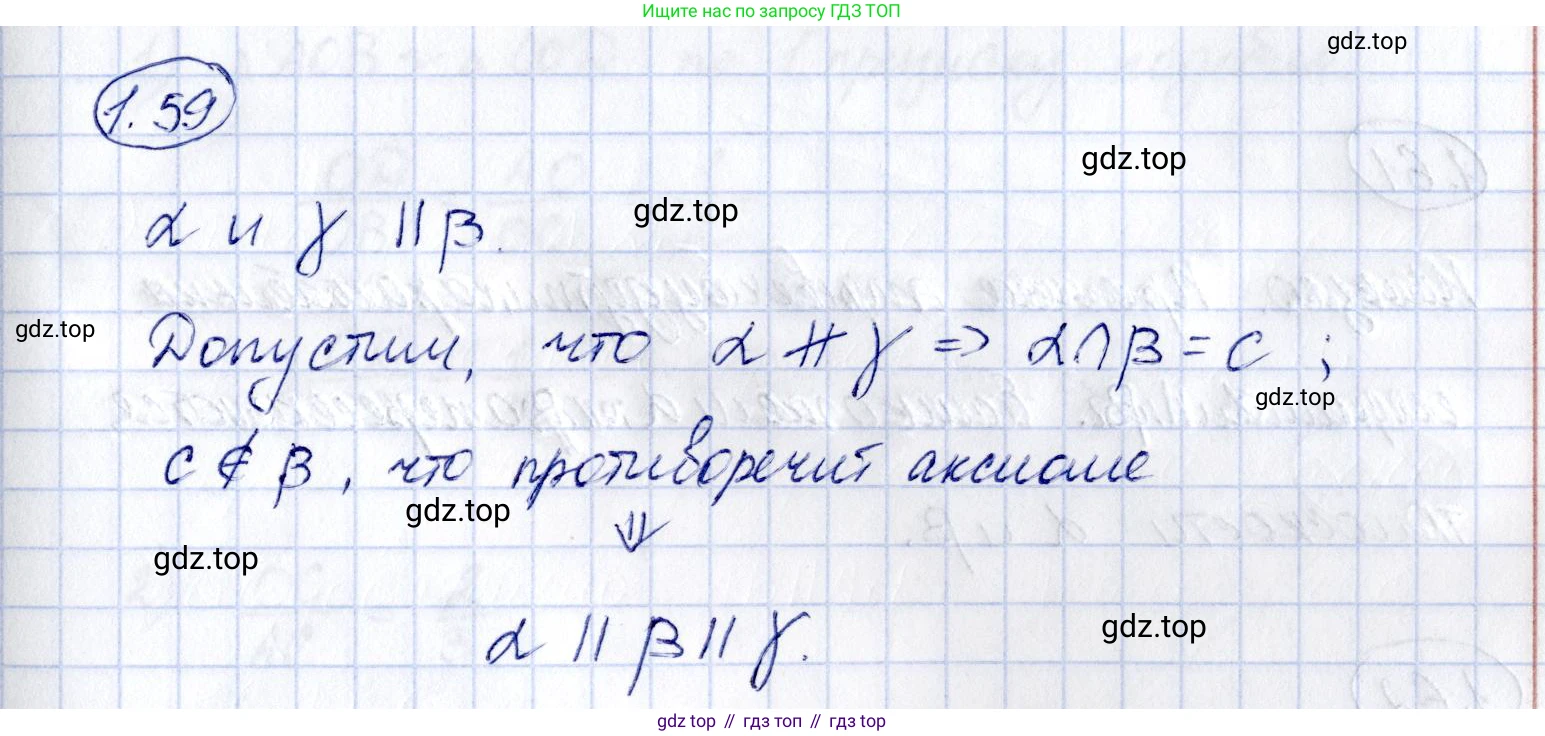 Ищите нас по запросу ГДЗ ТОП
gdz.top
1.59
gdz.top
α и γ || β.
gdz.top
gdz.top
Допустим, что α ∦ γ => α∩β = c ;
gdz.top
c ∉ β, что противоречит аксиоме
gdz.top
⇓
gdz.top
gdz.top
α || β || γ.
gdz top // гдз топ // гdz top